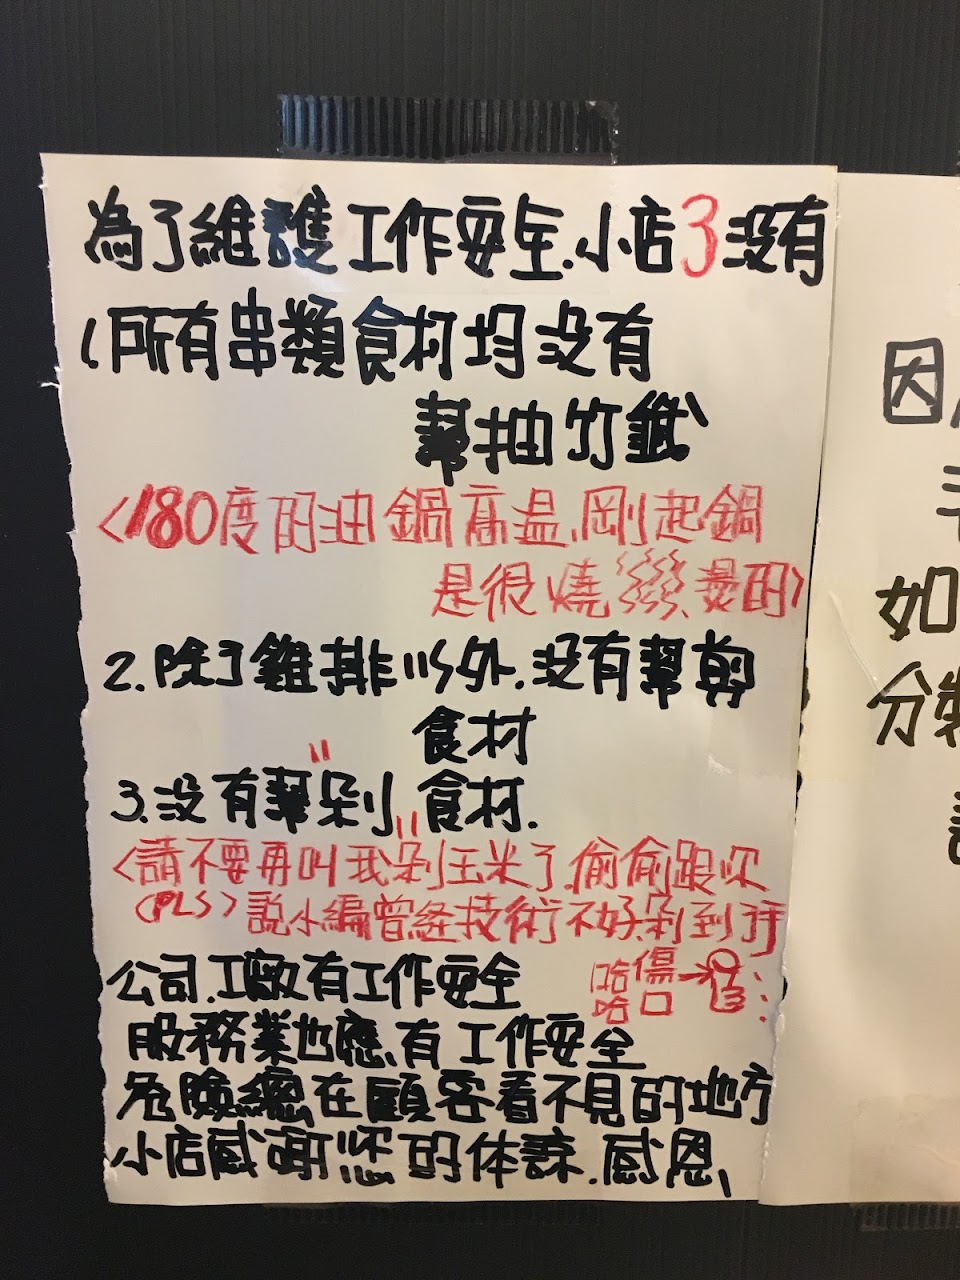 為了維護工作安全.小店3沒有
1.所有串類食材均沒有
幫抽竹籤
<180度的油鍋高溫、剛起鍋
是很燒燙燙的>
2.除了雞排以外.沒有幫剪
食材
3.沒有幫"剁"食材.
<請不要再叫我剁玉米了.偷偷跟你
(PLS>說小編曾経技術不好.剁到手
哈哈 傷口
公司.工廠有工作安全
服務業也應、有工作安全
危險總在顧客看不見的地方
小店感謝您的体諒.感恩、
因
如
分